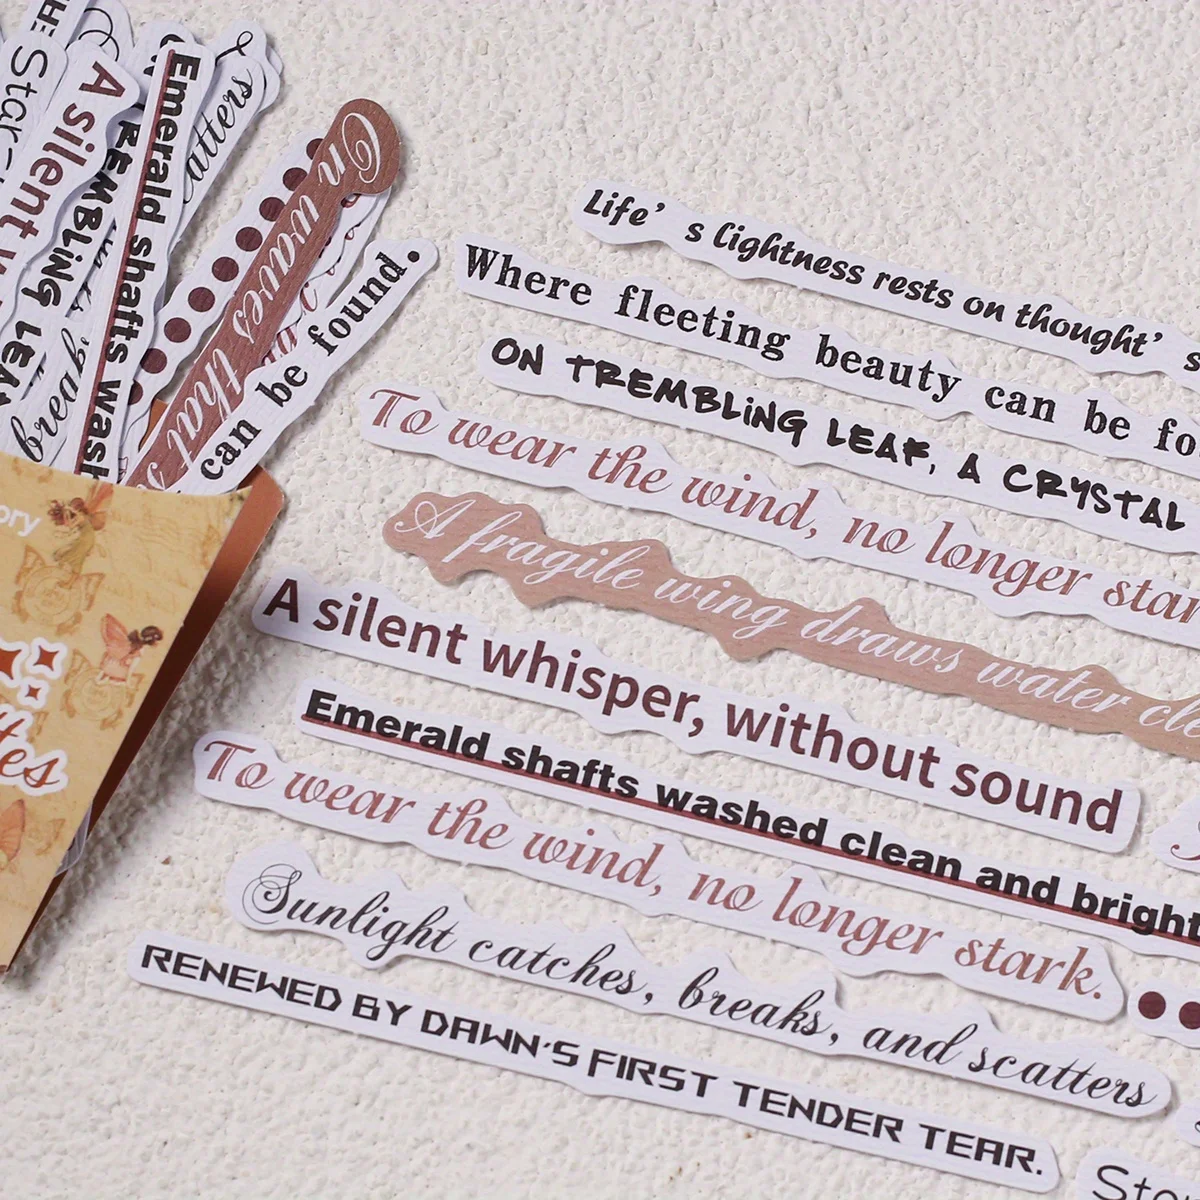 Star
A silent
TREMBLING LEAF
Emerald shafts wash
catters
break
On waves that
can be found.
ory
tes
Life’ s lightness rests on thought’ s
Where fleeting beauty can be fo
ON TREMBLING LEAF, A CRYSTAL
To wear the wind, no longer star
A fragile wing draws water cle
A silent whisper, without sound
Emerald shafts washed clean and bright
To wear the wind, no longer stark.
Sunlight catches, breaks, and scatters
RENEWED BY DAWN'S FIRST TENDER TEAR.
Sto